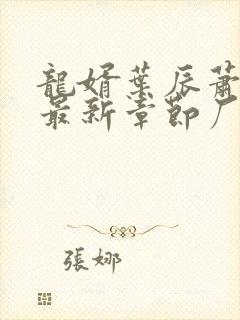 龍婿葉辰蕭
最新章節厂
張娜